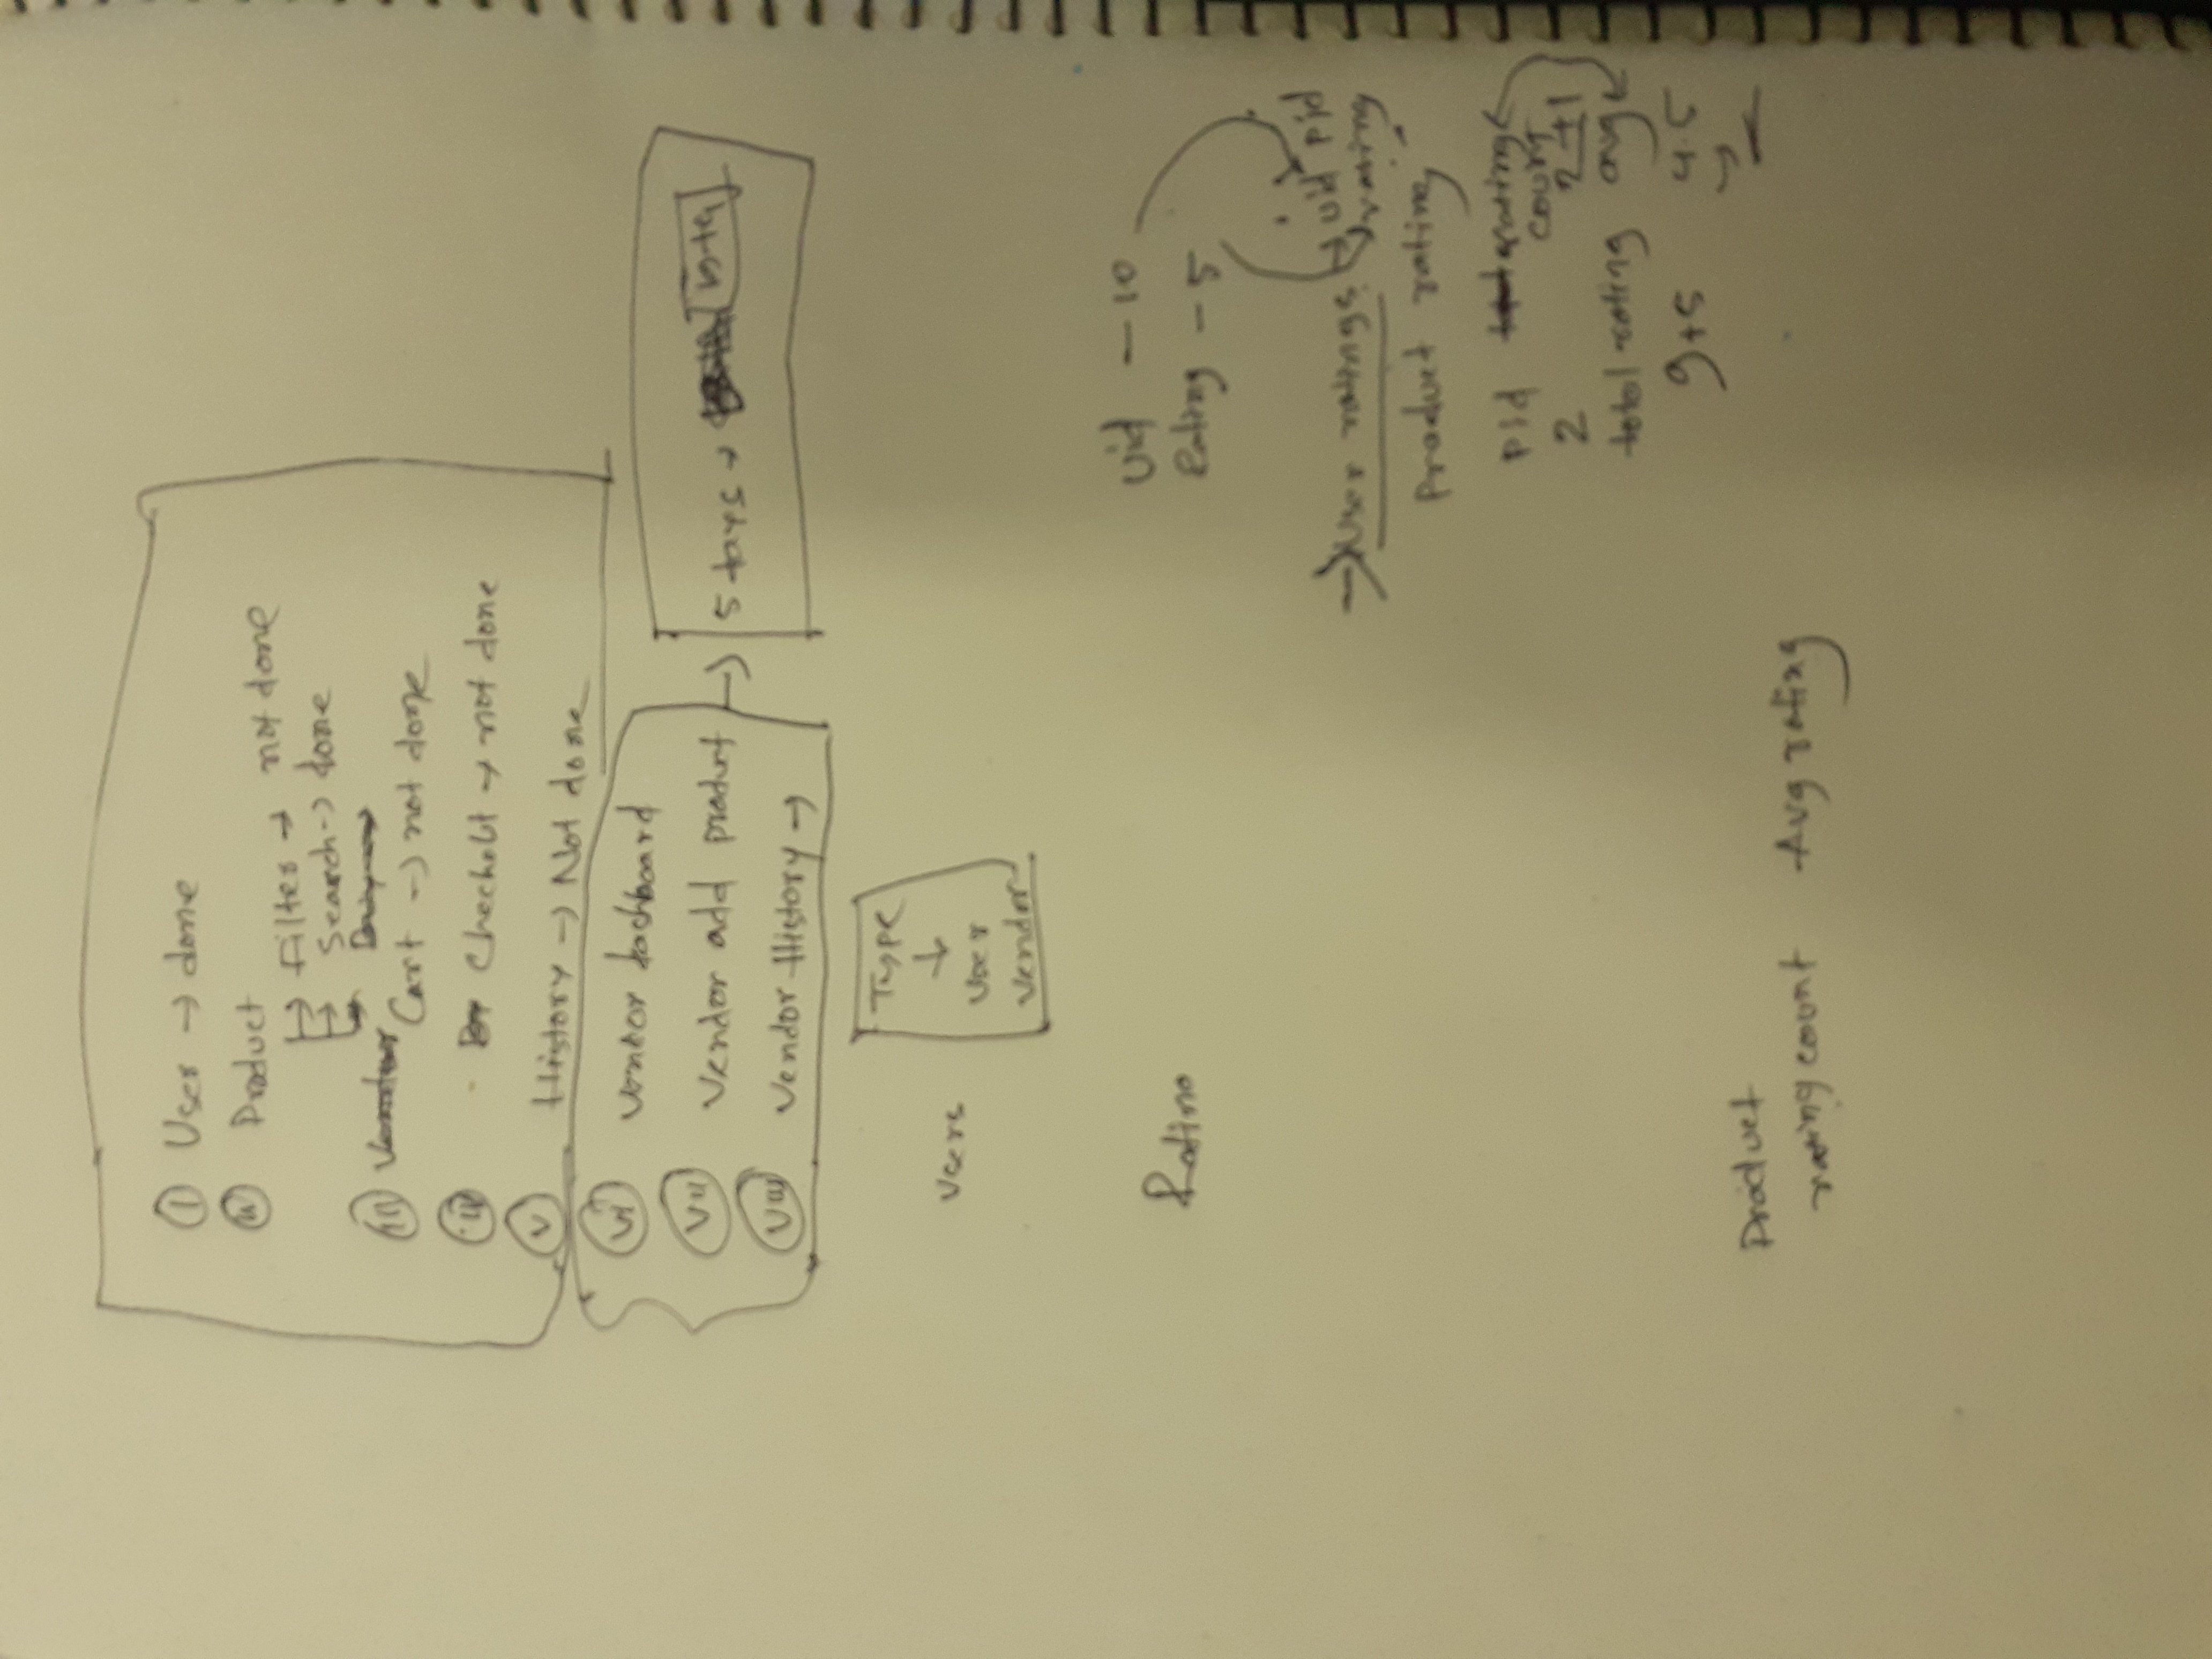 I User → done
II Product
→ Filter → not done
→ Search → done
III Cart → not done
Checkout → not done
V History → Not done
VI Vendor dashboard
VII Vendor add product
VIII Vendor History →
5 days →
Type
↓
Users
User
Vendor
Uid — 10
Rating — 5
Ratino
→ User ratings → uid pid
rating
Product rating
pid rating
count
2 2+1
total rating avg
9+5 4.5
Product
rating count Avg rating